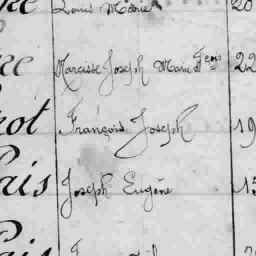 Louis Marie 20
Narcisse Joseph Marie Fçois 22
rot François Joseph 19
ais Joseph Eugène 15
ais